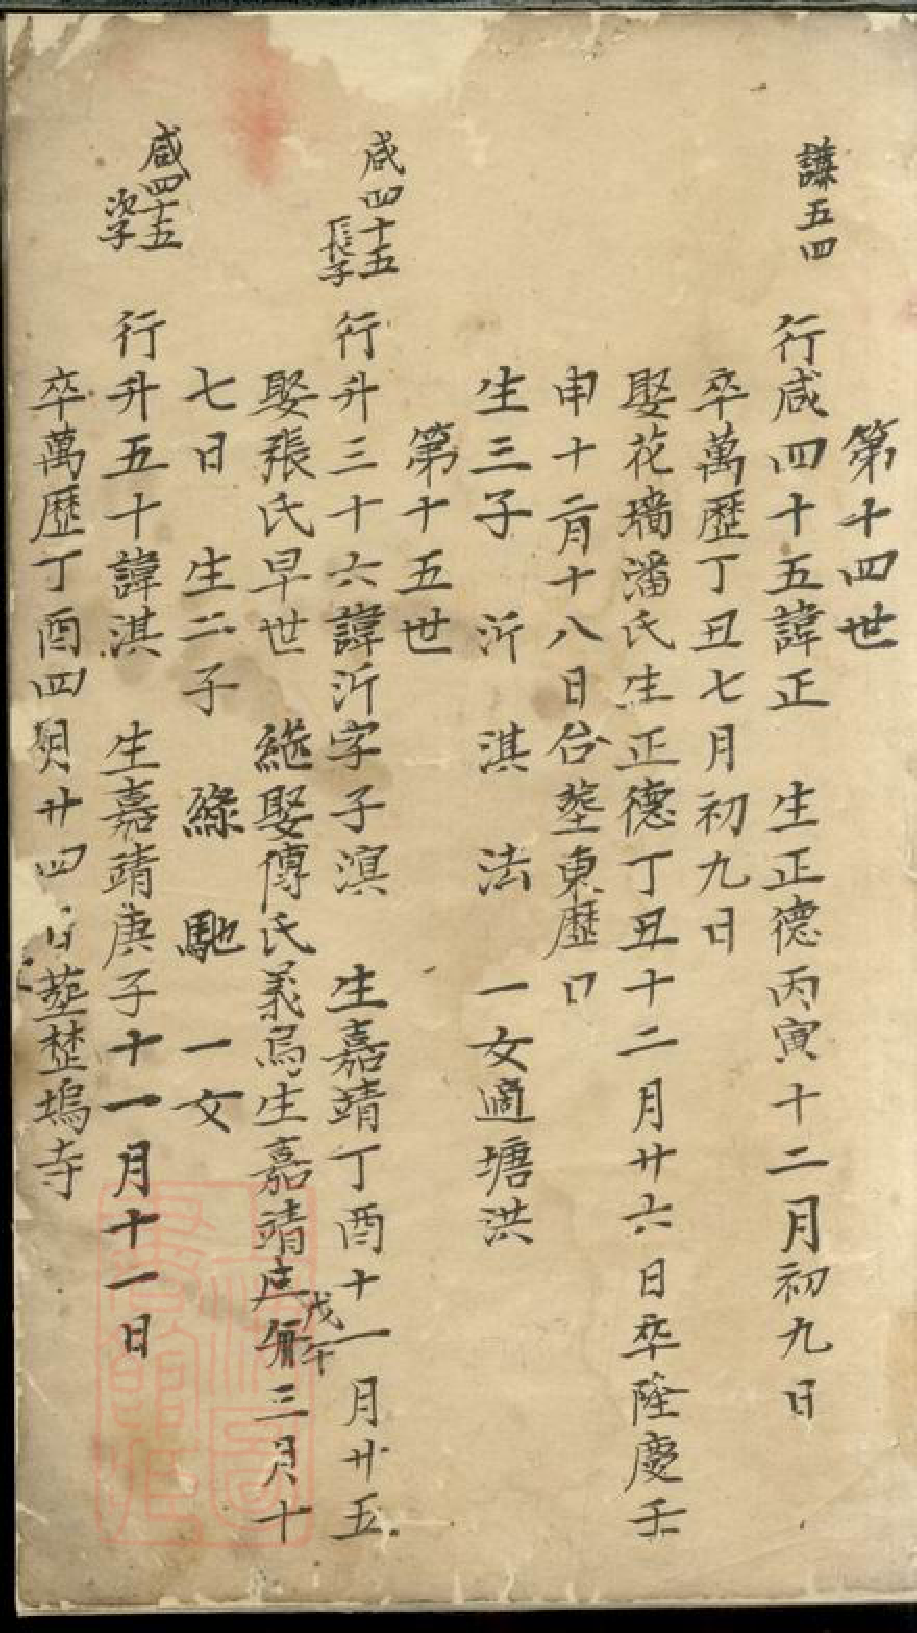 第十四世
謙五四
行咸四十五諱正 生正德丙寅十二月初九日
卒萬歷丁丑七月初九日
娶花墻潘氏生正德丁丑十二月廿六日卒隆慶壬
申十二月十八日台塟東歷口
生三子 沂 淇 法 一女適塘洪
第十五世
咸四十五
長子
行升三十六諱沂字子溟 生嘉靖丁酉十一月廿五
娶張氏早世 繼娶傅氏義烏生嘉靖戊午三月十
七日 生二子 綠 馳 一女
咸四十五
次子
行升五十諱淇 生嘉靖庚子十一月十一日
卒萬歷丁酉四月廿四日塟塢寺